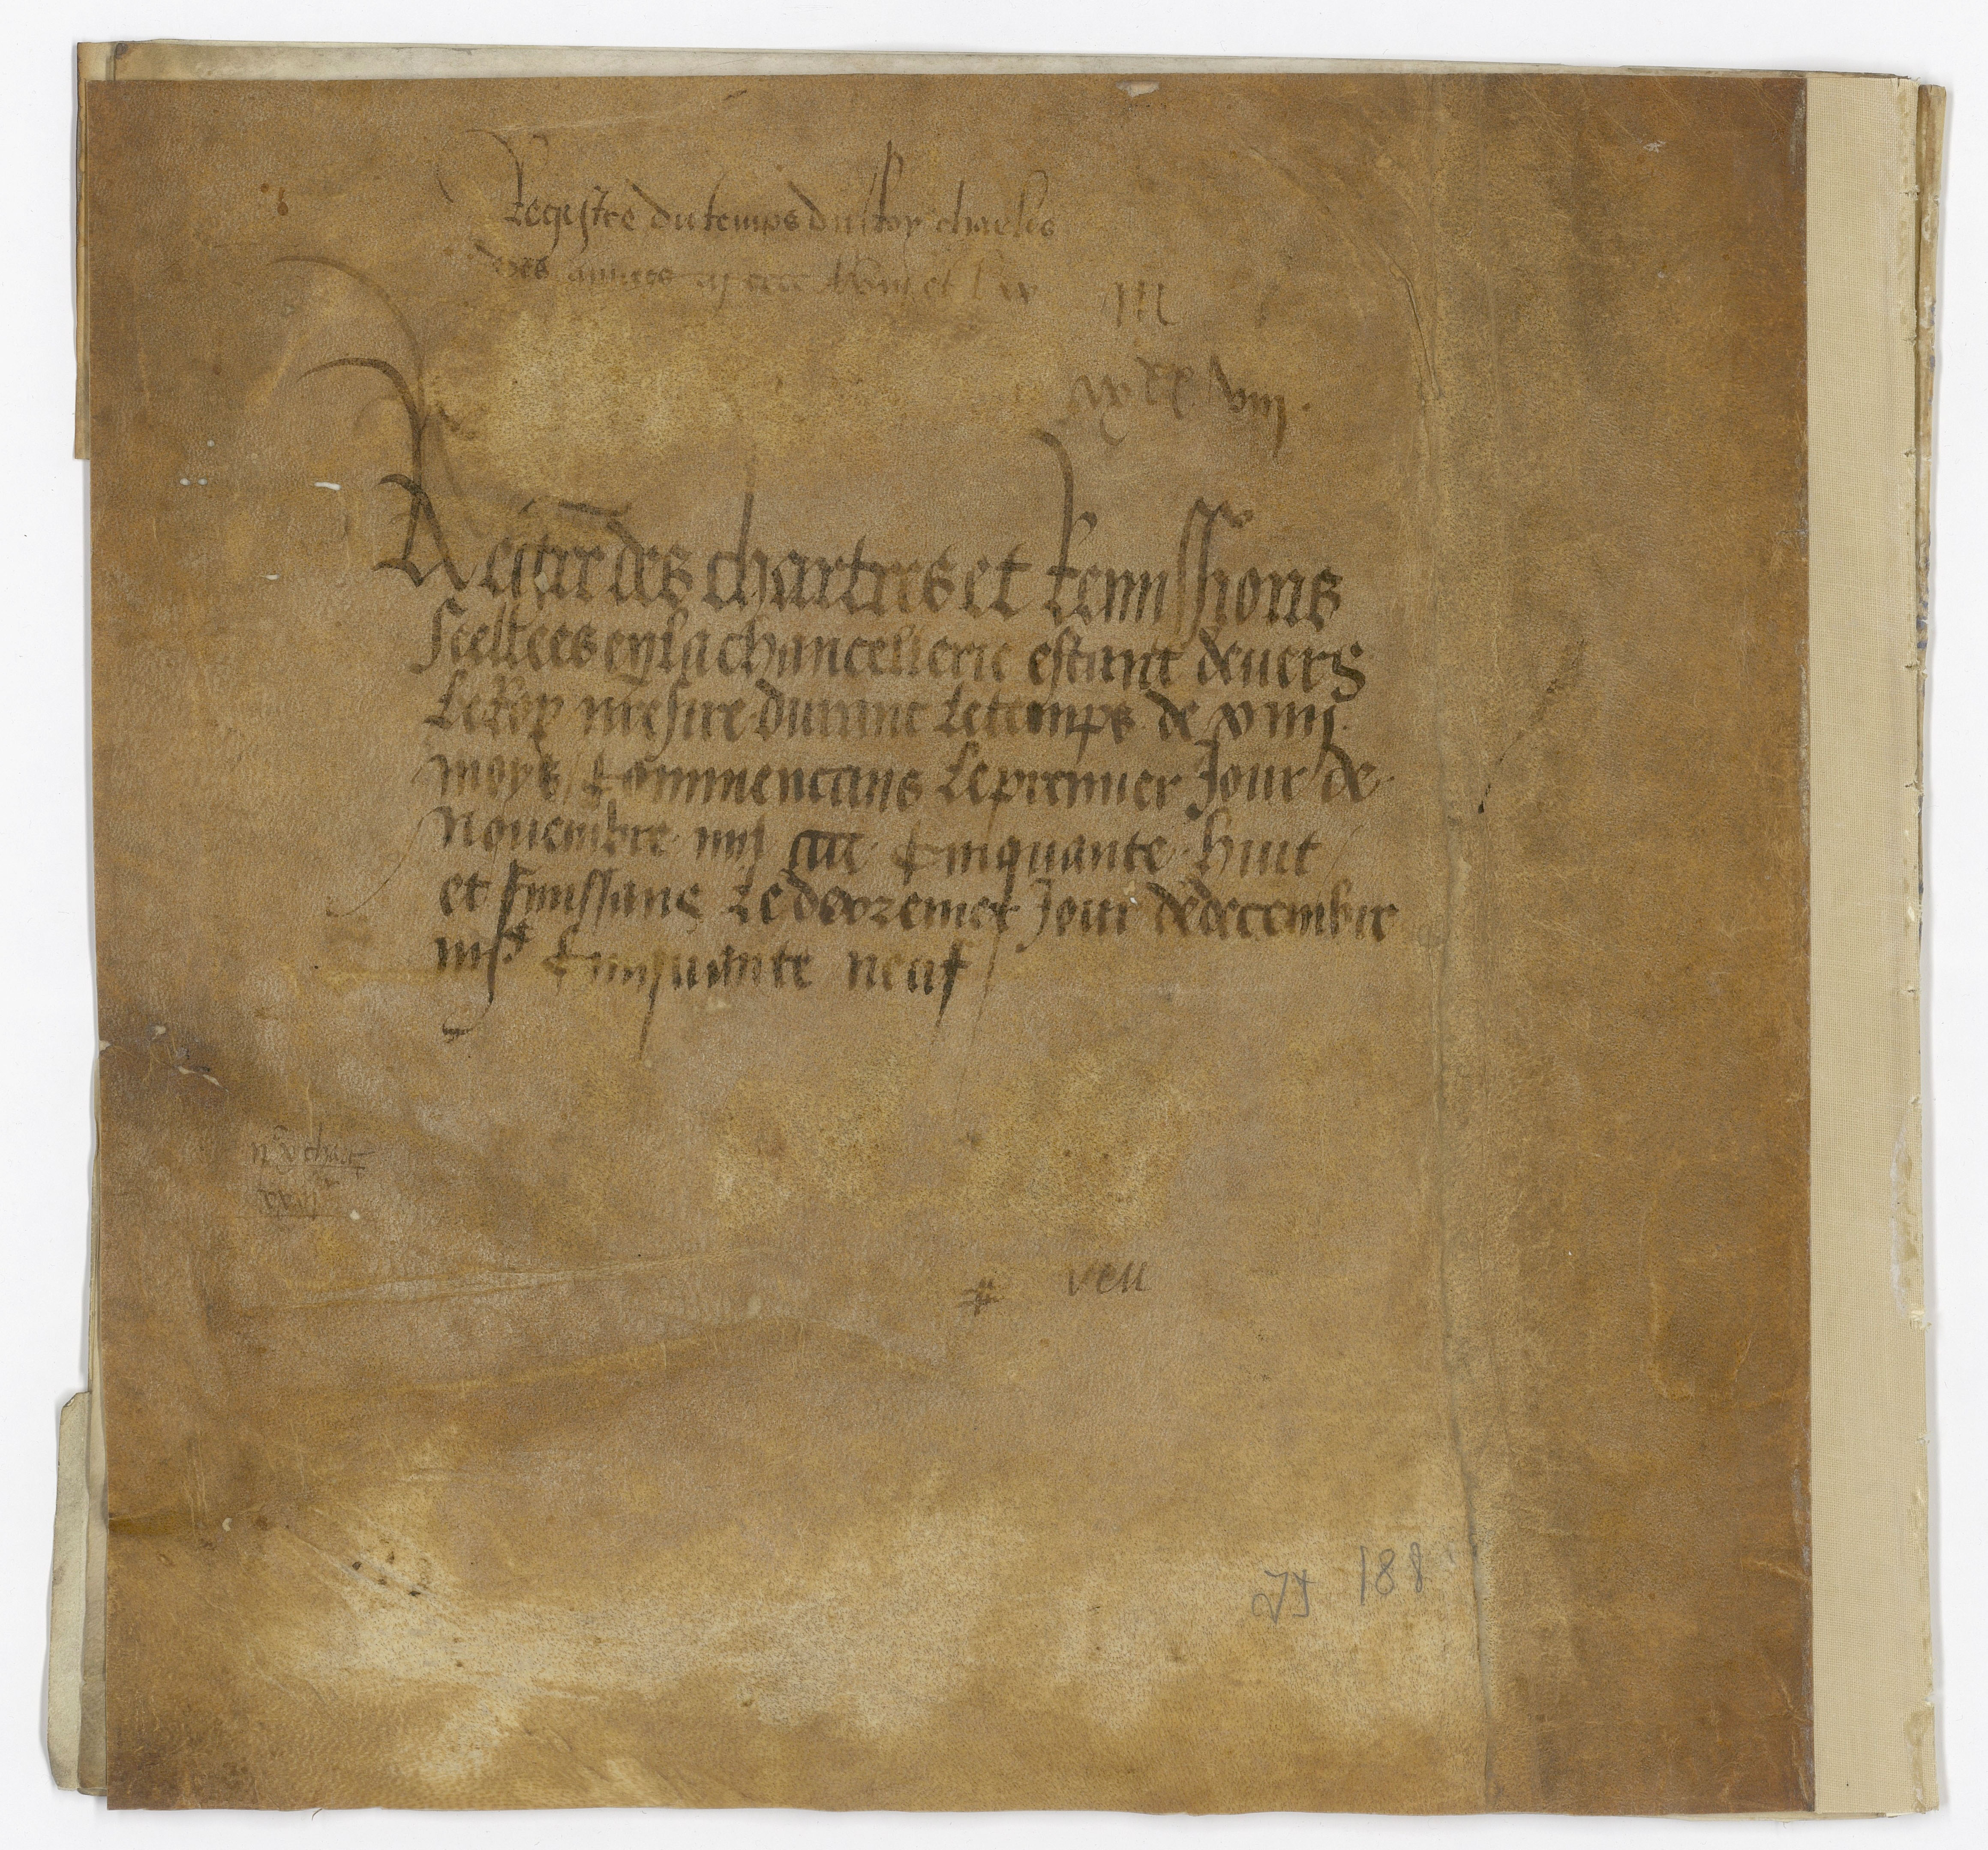 Registre du temps du Roy charles
des annees mil cccc lviii et lix
III
ixxx viii.
Registre des chartres et Remissions
Seellees en la chancellerie estant devers
Le Roy nresire durant le temps de xiiii
moys Commencans le premier Jour de
Novembre mil cccc Cinquante huit
et finissans Le derrenier Jour de decembre
mil cccc Cinquante neuf
veu
JJ 188